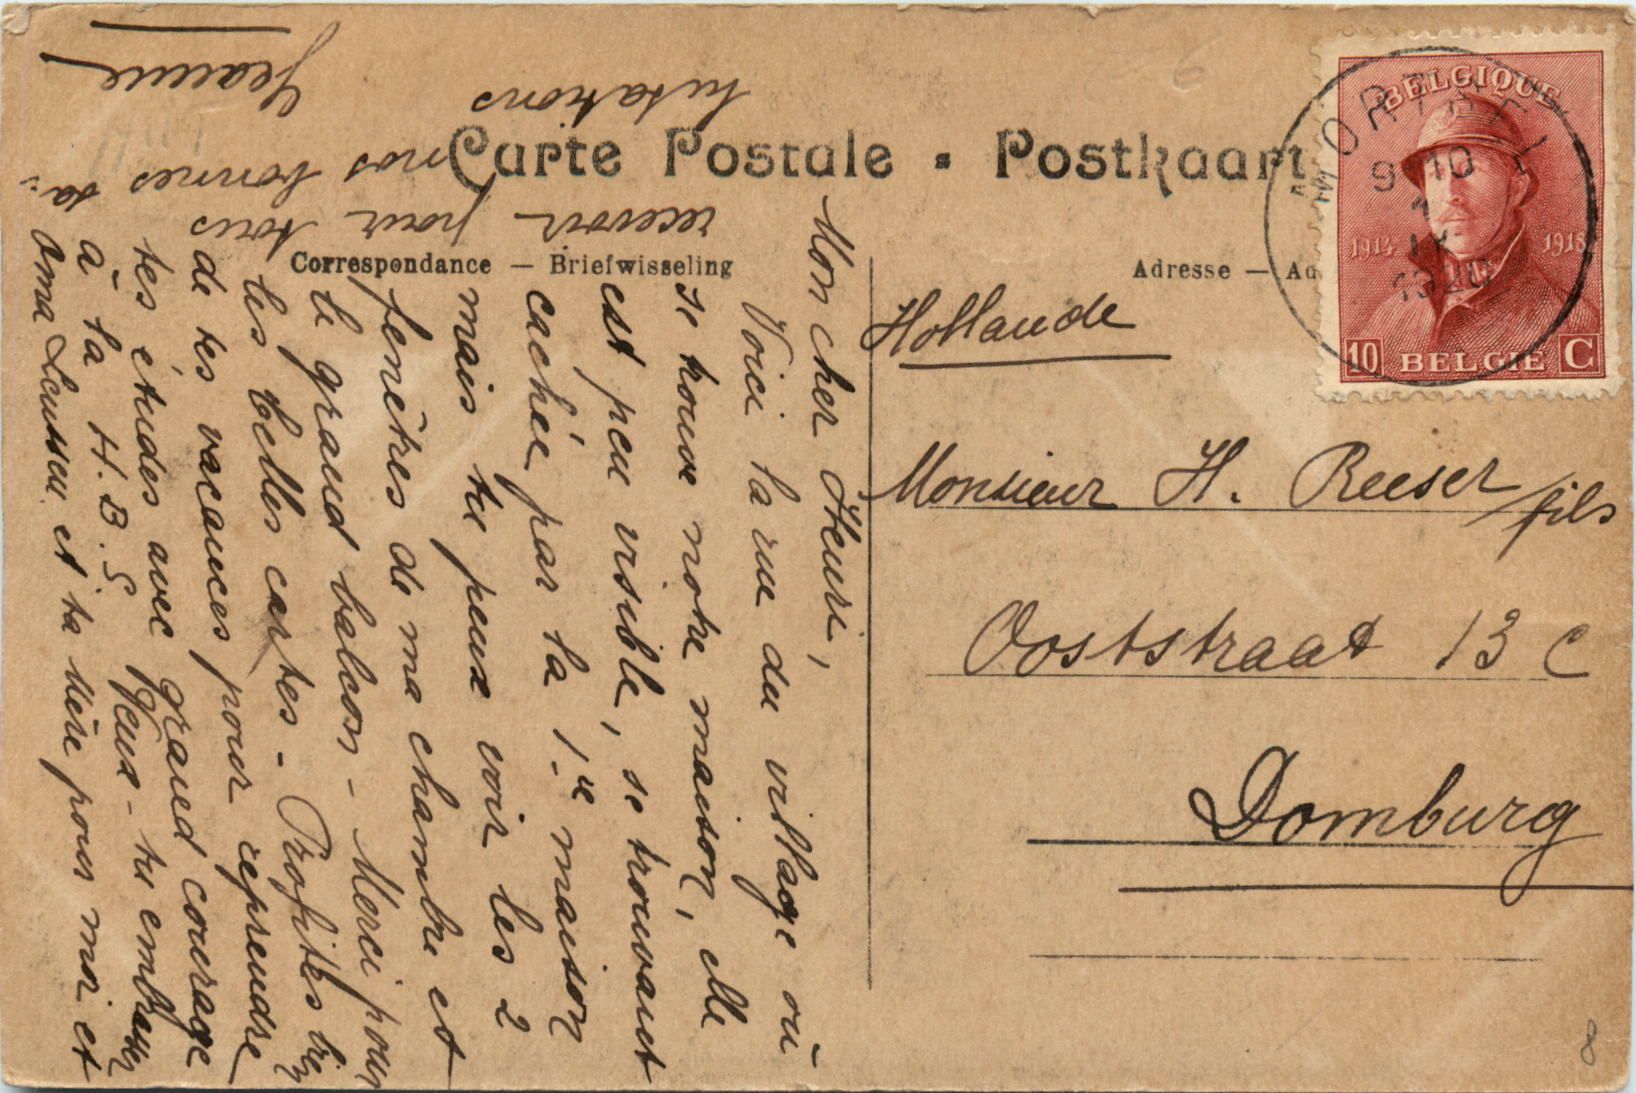 Carte Postale - Postkaart
Correspondance — Briefwisseling
Adresse — Ad
BELGIQUE
1914 1918
10 BELGIE C
MORTSEL
9-10
IX
1920
Hollande
Monsieur H. Reeser fils
Ooststraat 13 c
Domburg
Mon cher Henri,
Voici la rue du village où
se trouve notre maison, elle
est peu visible, se trouvant
cachée par la 1re maison
mais tu peux voir les 2
fenêtres de ma chambre et
le grand balcon - Merci pour
les belles cartes - Profites bien
de tes vacances pour reprendre
tes études avec grand courage
à la H.B.S. Veux-tu embrasser
Oma et ta Mère pour moi et
recevoir pour tous
nos bonnes sa=
lutations
Jeanne
8